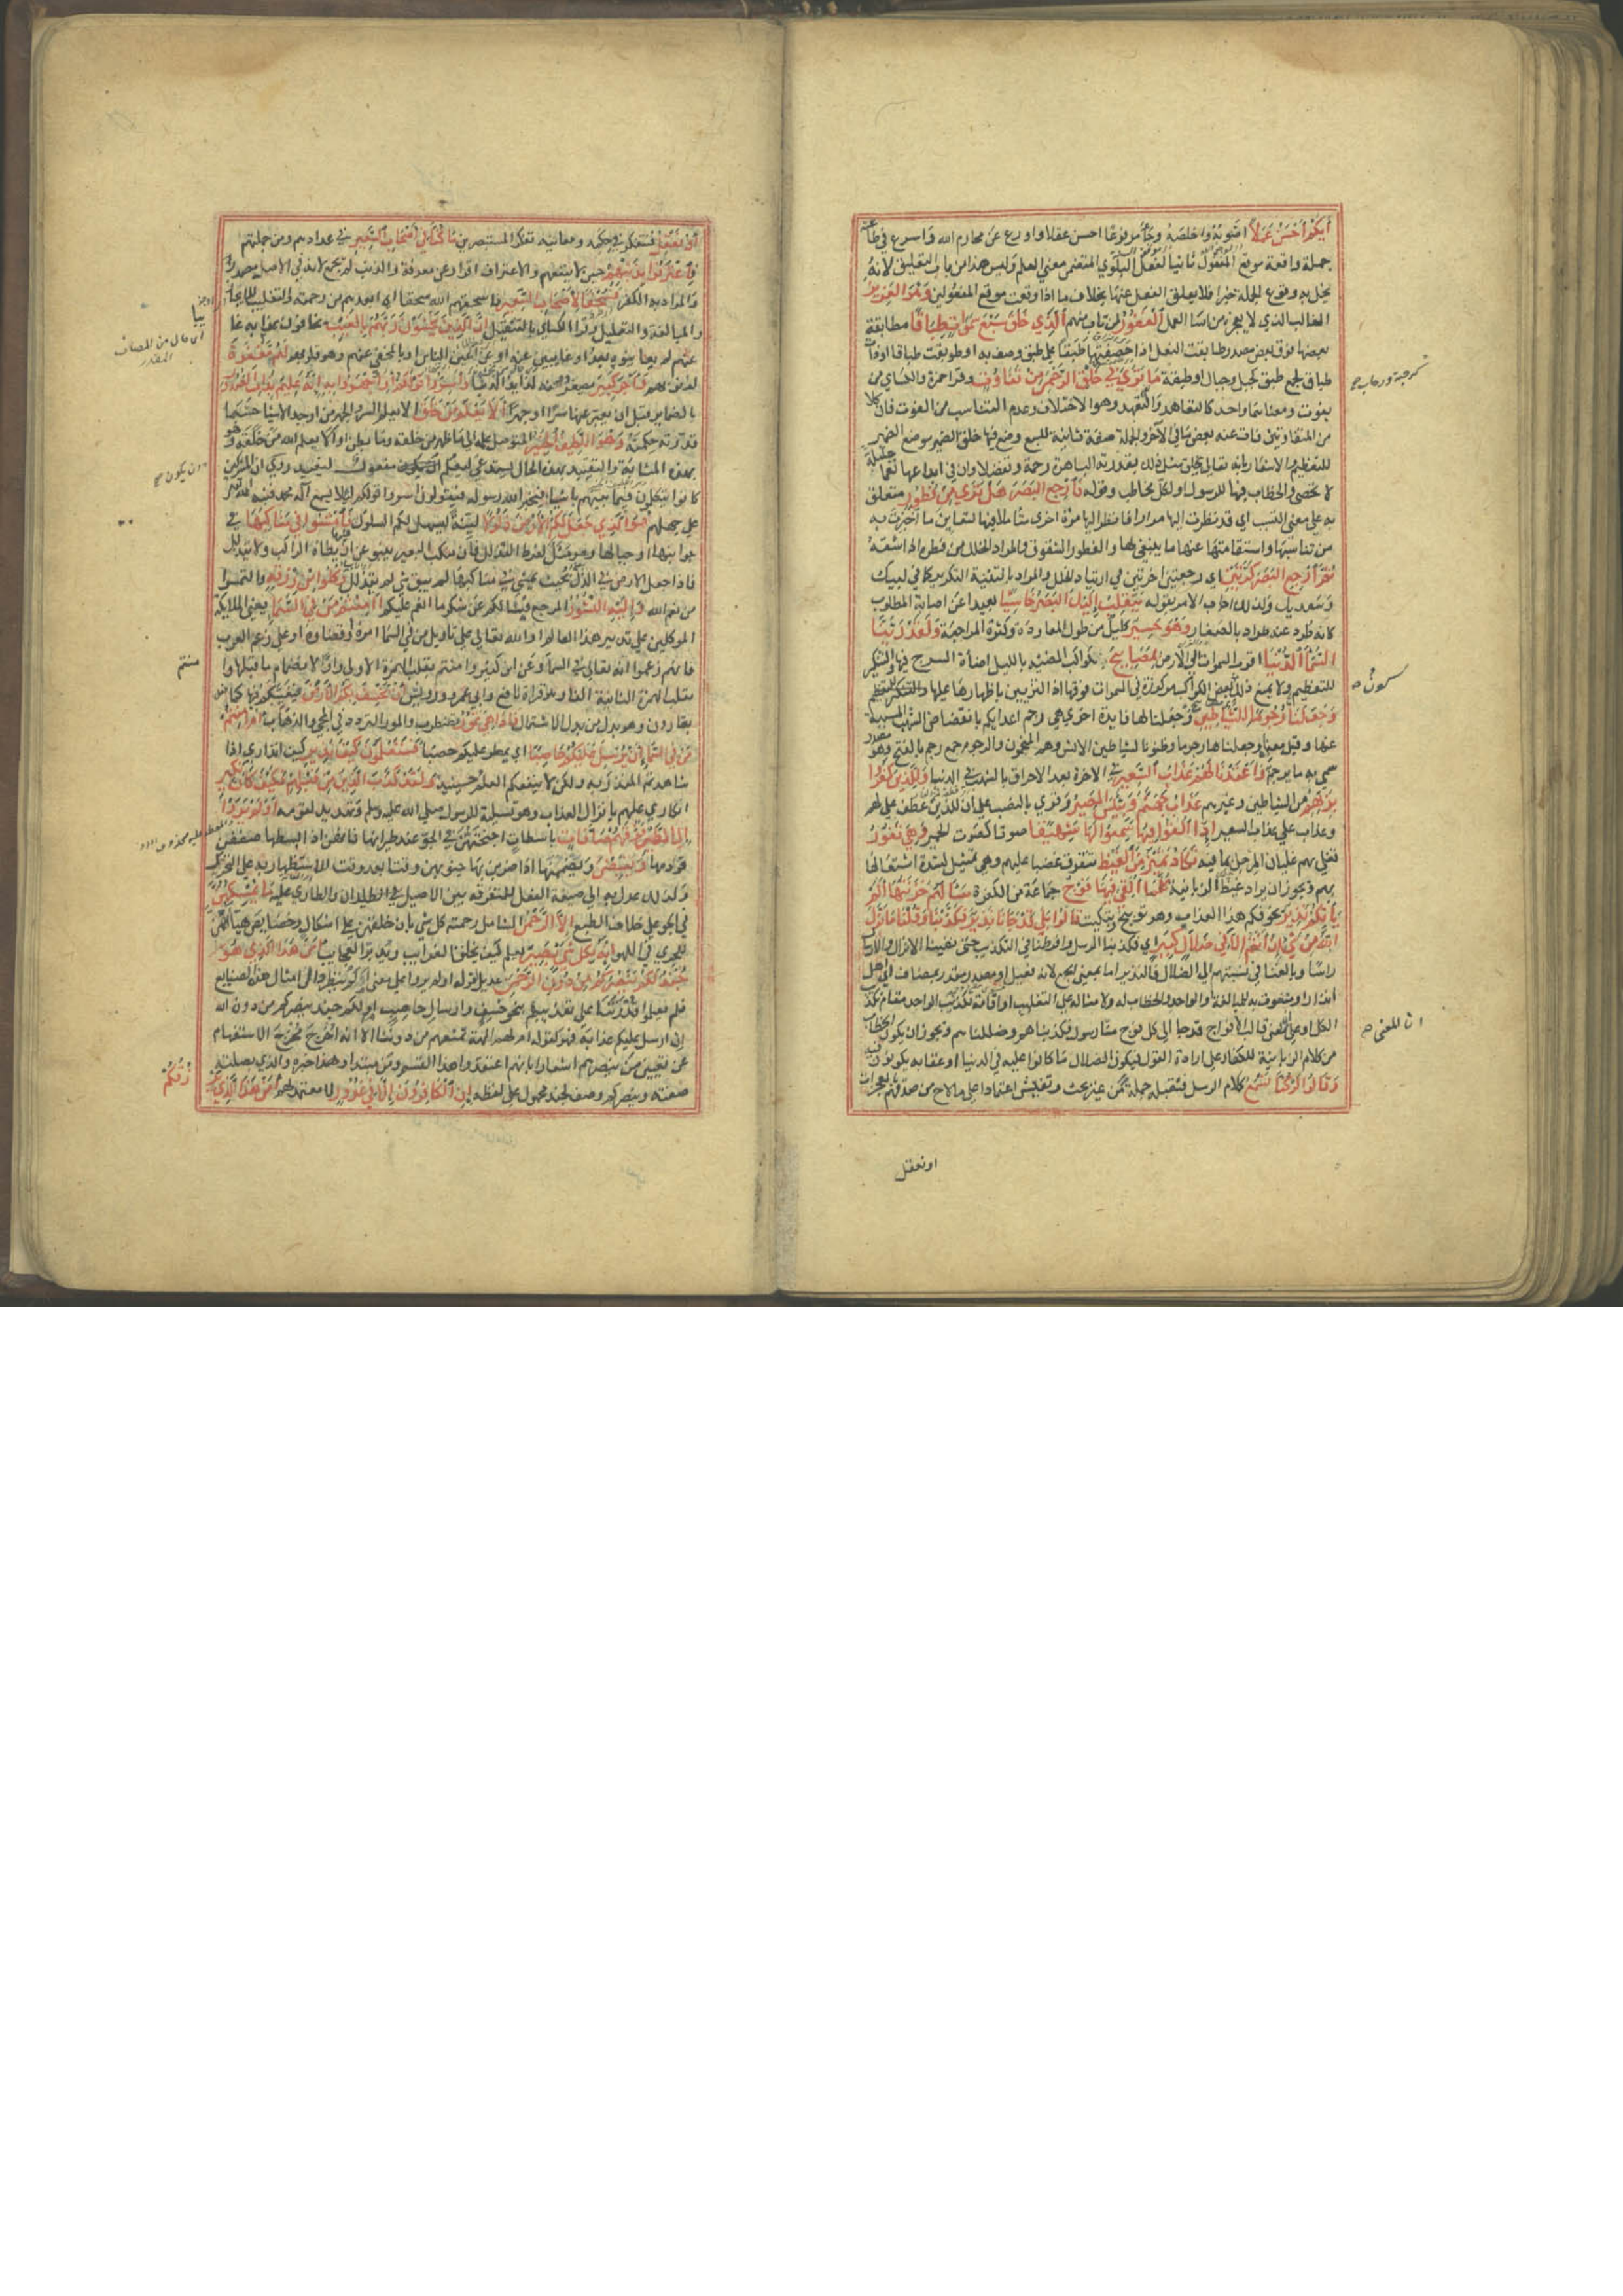 أيكم أحسن عملا اصوبه واخلصه وجا مرفوعا احسن عقلا واورع عن محارم الله واسرع في طاعته
جملة واقعة موقع المفعول ثانيا لفعل البلوي المتضمن معني العلم وليس هذا من باب التعليق لانه
يخل به وقوع الجملة خبرا فلا يعلق الفعل عنها بخلاف ما اذا وقعت موقع المفعولين وهو العزيز
الغالب الذي لا يعجزه من اسا العمل الغفور لمن تاب منهم الذي خلق سبع سموات طباقا مطابقة
بعضها فوق بعض مصدر طابقت النعل اذا خصفتها طبقا علي طبق وصف به او طوبقت طباقا او ذات
طباق جمع طبق كجبل وجبال او طبقة ما تري في خلق الرحمن من تفاوت وقرا حمزة والكساي من
تفوت ومعناهما واحد كالتعاهد والتعهد وهو الاختلاف وعدم التناسب من الفوت فان كلا
من المتفاوتين فات عنه بعض ما في الآخر والجملة صفة ثانية للسبع وضع فيها خلق الرحمن موضع الضمير
للتعظيم والاشعار بانه تعالي يخلق مثل ذلك بقدرته الباهرة رحمة وتفضلا وان في ابداعها نعما جليلة
لا تحصي والخطاب فيها للرسول او لكل مخاطب وقوله فارجع البصر هل تري من فطور متعلق
به علي معني التسبب اي قد نظرت اليها مرارا فانظر اليها مرة اخري متاملا فيها لتعاين ما اخبرت به
من تناسبها واستقامتها واستجماعها ما ينبغي لها والفطور الشقوق والمراد الخلل من فطره اذا شقه
ثم ارجع البصر كرتين اي رجعتين اخرتين في ارتياد الخلل والمراد بالتثنية التكرير كما في لبيك
وسعديك ولذلك اجاب الامر بقوله ينقلب اليك البصر خاسيا بعيدا عن اصابة المطلوب
كانه طرد عنه طردا بالصغار وهو حسير كليل من طول المعاودة وكثرة المراجعة ولقد زينا
السما الدنيا اقرب السموات الي الارض بمصابيح بكواكب المضيئة بالليل اضاة السرج فيها والتنكير
للتعظيم ولا يمنع ذلك بعض الكواكب مركوزة في السموات فوقها اذ التزيين باظهارها عليها
وجعلناها رجوما للشياطين وجعلنا لها فايدة اخري هي رجم اعدايكم بانقضاض الشهب المسببة
عنها وقيل معناه وجعلناها رجوما وظنونا لشياطين الانس وهم المنجمون والرجوم جمع رجم بالفتح وهو مصدر
سمي به ما يرجم به واعتدنا لهم عذاب السعير في الاخرة بعد الاحراق بالشهب في الدنيا وللذين كفروا
بربهم من الشياطين وغيرهم عذاب جهنم وبئس المصير وقري بالنصب علي ان للذين عطف علي لهم
وعذاب علي عذاب السعير اذا القوا فيها سمعوا لها شهيقا صوتا كصوت الحمير وهي تفور
تغلي بهم غليان المرجل بما فيه تكاد تميز من الغيظ تتفرق غضبا عليهم وهو تمثيل لشدة اشتعالها
بهم ويجوز ان يراد غيظ الزبانية كلما القي فيها فوج جماعة من الكفرة سالهم خزنتها الم
ياتكم نذير يخوفكم هذا العذاب وهو توبيخ وتبكيت قالوا بلي قد جانا نذير فكذبنا وقلنا ما نزل
الله من شي ان انتم الا في ضلال كبير اي فكذبنا الرسل وافرطنا في التكذيب حتي نفينا الانزال والارسال
راسا وبالغنا في نسبتهم الي الضلال فالنذير اما بمعني الجمع لانه فعيل او مصدر مقدر بمضاف اي اهل
انذار او منعوت به للمبالغة او الواحد والخطاب له ولامثاله علي التغليب او اقامة تكذيب الواحد مقام تكذيب
الكل او علي المعني قالت الافواج قد جا الي كل فوج منا رسول فكذبناهم وضللناهم ويجوز ان يكون الخطاب
من كلام الزبانية للكفار علي ارادة القول فيكون الضلال ما كانوا عليه في الدنيا او عقابه يكونون فيه
وقالوا لو كنا نسمع كلام الرسل فنقبله جملة من غير بحث وتفتيش اعتمادا علي ما لاح من صدقهم بالمعجزات
كرحبة ورحاب صح
كون ه
ان المعني ه
او نعقل
او نعقل فنتفكر في حكمه ومعانيه تفكر المستبصرين ما كنا في اصحاب السعير في عدادهم ومن جملتهم
فاعترفوا بذنبهم حين لا ينفعهم والاعتراف اقرار عن معرفة والذنب لم يجمع لانه في الاصل مصدر
والمراد به الكفر فسحقا لاصحاب السعير فاسحقهم الله سحقا اي ابعدهم من رحمته والتغليب للايجاز
والمبالغة والتعليل وقرا الكساي بالتثقيل ان الذين يخشون ربهم بالغيب يخافون عذابه غايبا
عنهم لم يعاينوه بعد او غايبين عنه او عن اعين الناس او بالمخفي عنهم وهو قلوبهم لهم مغفرة
لذنوبهم واجر كبير يصغر دونه لذايذ الدنيا واسروا قولكم او اجهروا به انه عليم بذات الصدور
بالضماير قبل ان يعبر عنها سرا او جهرا الا يعلم من خلق الا يعلم السر والجهر من اوجد الاشيا حسبما
قدرته حكمته وهو اللطيف الخبير المتوصل علمه الي ما ظهر من خلقه وما بطن او الا يعلم الله من خلقه وهو
بهذه المثابة والتقييد بهذه الحال يستدعي ليعلم مفعول ليفيد روي ان المشركين
كانوا يتكلمون فيما بينهم باشيا فيخبر الله رسوله فيقولون اسروا قولكم لئلا يسمع اله محمد فنبه الله
علي جهلهم هو الذي جعل لكم الارض ذلولا لينة يسهل لكم السلوك فامشوا في مناكبها في
جوانبها او جبالها وهو مثل لفرط التذلل فان منكب البعير ينبو عن ان يطاه الراكب ولا يتذلل
فاذا جعل الارض في الذل بحيث يمشي في مناكبها لم يبق شي لم يتذلل وكلوا من رزقه والتمسوا
من نعم الله واليه النشور المرجع فيسالكم عن شكر ما انعم عليكم اامنتم من في السما يعني الملايكة
الموكلين علي تدبير هذا العالم او الله تعالي علي تاويل من في السما امره او قضاوه او علي زعم العرب
فانهم زعموا انه تعالي في السما وعن ابن كثير وامنتم بقلب الهمزة الاولي واوا لانضمام ما قبلها وا
بقلب الهمزة الثانية الفا وهو قراة نافع وابي عمرو ورويس ان يخسف بكم الارض فيغيبكم فيها كما
بقارون وهو بدل من بدل الاشتمال فاذا هي تمور تضطرب والمور التردد في المجي والذهاب ام امنتم
من في السما ان يرسل عليكم حاصبا اي يمطر عليكم حصبا فستعلمون كيف نذير كيف انذاري اذا
شاهدتم المنذر به ولكن لا ينفعكم العلم حينيذ ولقد كذب الذين من قبلهم فكيف كان نكير
انكاري عليهم بانزال العذاب وهو تسلية للرسول صلي الله عليه وسلم وتهديد لقومه اولم يروا
الي الطير فوقهم صافات باسطات اجنحتهن في الجو عند طيرانها فانهن اذا بسطنها صففن
قوادمها ويقبضن ويضممنها اذا ضربن بها جنوبهن وقتا بعد وقت للاستظهار به علي التحرك
ولذلك عدل به الي صيغة الفعل للتفرقة بين الاصيل في الطيران والطاري عليه ما يمسكهن
في الجو علي خلاف الطبع الا الرحمن الشامل رحمته كل شي بان خلقهن علي اشكال وخصايص هياتهن
للجري في الهوا انه بكل شي بصير يعلم كيف يخلق الغرايب ويدبر العجايب امن هذا الذي هو
جند لكم ينصركم من دون الرحمن عديل لقوله اولم يروا علي معني اولم ينظروا في امثال هذه الصنايع
فلم يعلموا قدرتنا علي تعذيبهم بنحو خسف وارسال حاصب ام لكم جند ينصركم من دون الله
ان ارسل عليكم عذابه فهو كقوله ام لهم الهة تمنعهم من دوننا الا انه اخرج مخرج الاستفهام
عن تعيين من ينصرهم اشعارا بانهم اعتقدوا هذا القسم ومن مبتدا وهذا خبره والذي بصلته
صفته وينصركم وصف لجند محمول علي لفظه ان الكافرون الا في غرور لا معتمد لهم امن هذا الذي
يرزقكم
اي حال من المضاف
المقدر
ان يكون صح
منتم